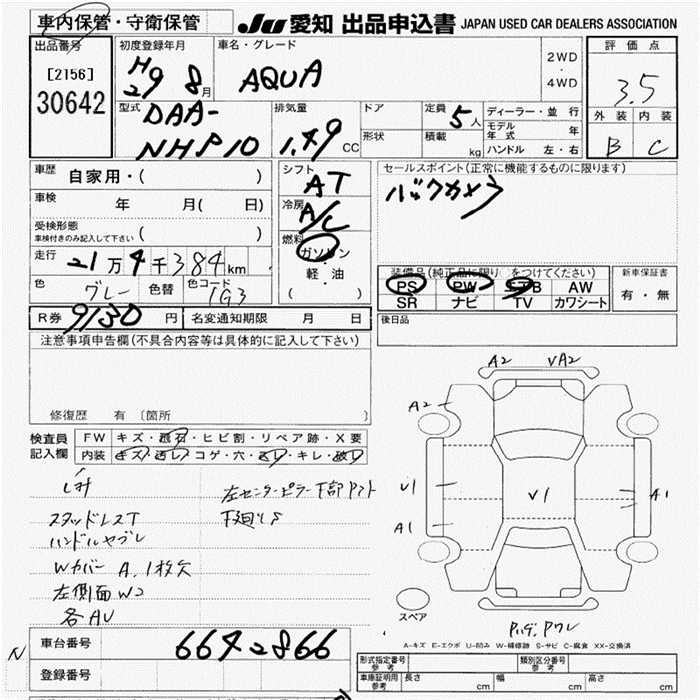 車内保管・守衛保管
JU 愛知 出品申込書 JAPAN USED CAR DEALERS ASSOCIATION
出品番号
[2156]
30642
初度登録年月
H29 8月
車名・グレード
AQUA
2WD
・
4WD
評価点
3.5
外装 内装
B C
型式
DAA-
NHP10
排気量
1.49 CC
ドア
形状
定員 5人
積載 kg
ディーラー・並行
モデル年式 年
ハンドル 左・右
車歴 自家用・( )
車検 年 月( 日)
受検形態
車検付きのみ記入して下さい ( )
走行 21万4千384km
色 グレー 色替 色コード 1G3
シフト AT
冷房 A/C
燃料
ガソリン
・
軽・油
( )
セールスポイント(正常に機能するものに限ります)
バックカメラ
装備品(純正品に限り をつけてください)
PS PW ST B AW
SR ナビ TV カワシート
新車保証書
有・無
R券 9130円 名変通知期限 月 日
後日品
注意事項申告欄(不具合内容等は具体的に記入して下さい)
修復歴 有 〔箇所 〕
検査員
記入欄
FW キズ・飛石・ヒビ割・リペア跡・X要
内装 キズ・汚レ・コゲ・穴・スレ・キレ・破レ
スタッドレスT
ハンドルヤブレ
Wカバー A、1枚欠
左側面W2
各AU
左センターピラー下部
下廻りS
A2 VA2
A2
U1 V1 A1
A1
スペア
A-キズ E-エクボ U-凹み W-補修跡 S-サビ C-腐食 XX-交換済
車台番号 6642866
N
登録番号
形式指定番号 参考
類別区分番号 参考
車庫証明用 参考 長さ cm 幅 cm 高さ cm